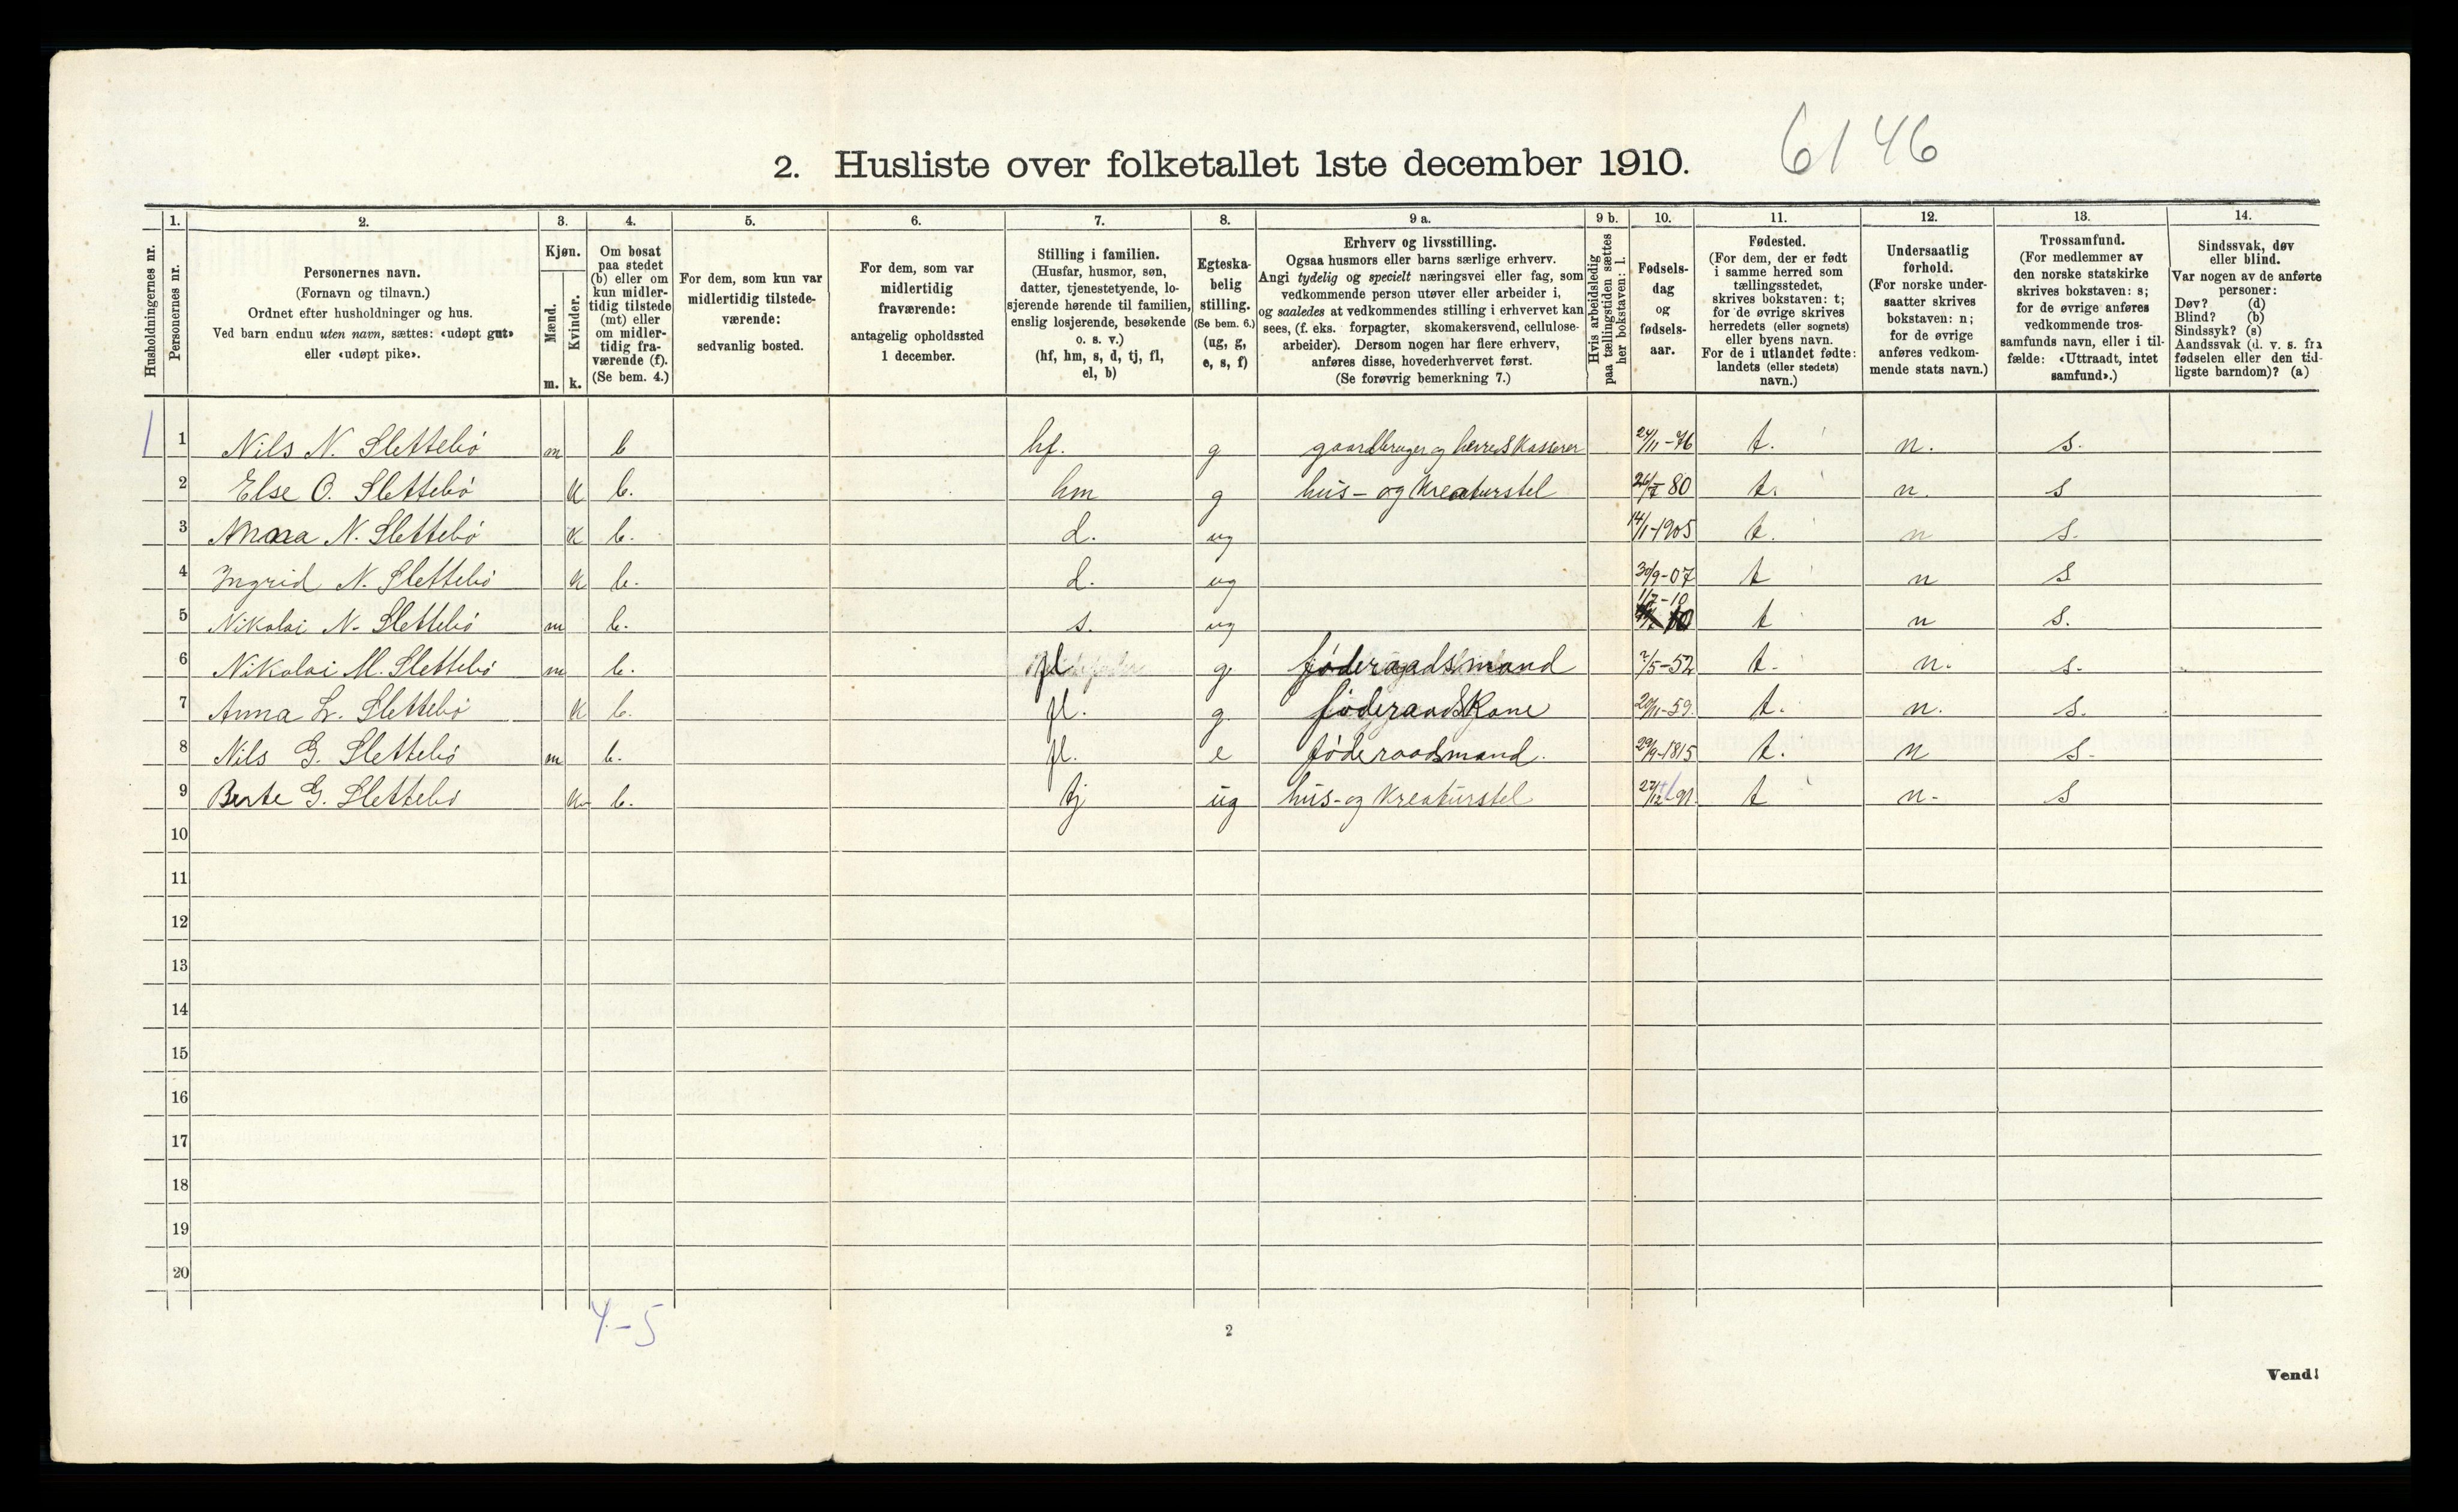 2. Husliste over folketallet 1ste december 1910.
6146
1. 2. 3. 4. 5. 6. 7. 8. 9 a. 9 b. 10. 11. 12. 13. 14.
Husholdningernes nr.
Personernes nr.
Personernes navn.
(Fornavn og tilnavn.)
Ordnet efter husholdninger og hus.
Ved barn endnu uten navn, sættes: «udøpt gut»
eller «udøpt pike».
Kjøn.
Mænd.
Kvinder.
m. k.
Om bosat
paa stedet
(b) eller om
kun midler-
tidig tilstede
(mt) eller
om midler-
tidig fra-
værende (f).
(Se bem. 4.)
For dem, som kun var
midlertidig tilstede-
værende:
sedvanlig bosted.
For dem, som var
midlertidig
fraværende:
antagelig opholdssted
1 december.
Stilling i familien.
(Husfar, husmor, søn,
datter, tjenestetyende, lo-
sjerende hørende til familien,
enslig losjerende, besøkende
o. s. v.)
(hf, hm, s, d, tj, fl,
el, b)
Egteska-
belig
stilling.
(Se bem. 6.)
(ug, g,
e, s, f)
Erhverv og livsstilling.
Ogsaa husmors eller barns særlige erhverv.
Angi tydelig og specielt næringsvei eller fag, som
vedkommende person utøver eller arbeider i,
og saaledes at vedkommendes stilling i erhvervet kan
sees, (f. eks. forpagter, skomakersvend, cellulose-
arbeider). Dersom nogen har flere erhverv,
anføres disse, hovederhvervet først.
(Se forøvrig bemerkning 7.)
Hvis arbeidsledig
paa tællingstiden sættes
her bokstaven: l.
Fødsels-
dag
og
fødsels-
aar.
Fødested.
(For dem, der er født
i samme herred som
tællingsstedet,
skrives bokstaven: t;
for de øvrige skrives
herredets (eller sognets)
eller byens navn.
For de i utlandet fødte:
landets (eller stedets)
navn.)
Undersaatlig
forhold.
(For norske under-
saatter skrives
bokstaven: n;
for de øvrige
anføres vedkom-
mende stats navn.)
Trossamfund.
(For medlemmer av
den norske statskirke
skrives bokstaven: s;
for de øvrige anføres
vedkommende tros-
samfunds navn, eller i til-
fælde: «Uttraadt, intet
samfund».)
Sindssvak, døv
eller blind.
Var nogen av de anførte
personer:
Døv? (d)
Blind? (b)
Sindssyk? (s)
Aandssvak (d. v. s. fra
fødselen eller den tid-
ligste barndom)? (a)
1 1 Nils N. Slettebö m b hf. g gaardbruger og herredskasserer 24/11-76 t. n. s.
2 Else O. Slettebö k b. hm g hus- og kreaturstel 26/7 80 t. n. s
3 Anna N. Slettebö k b. d. ug 14/1-1905 t. n s.
4 Ingrid N. Slettebö k b. d. ug 30/9-07 t n s
5 Nikolai N. Slettebö m b. s. ug 11/7-10 t n s.
6 Nikolai M. Slettebö m b. fl g. föderaadsmand 2/5-52 t. n. s.
7 Anna L. Slettebö k b. fl. g. föderaadskone 20/11-59. t. n. s.
8 Nils G. Slettebö m b. fl. e föderaadsmand. 29/9-1815 t. n s.
9 Berte G. Slettebö k b. tj ug hus- og kreaturstel 27/12-91 t n. s
10
11
12
13
14
15
16
17
18
19
20
4-5
2
Vend!